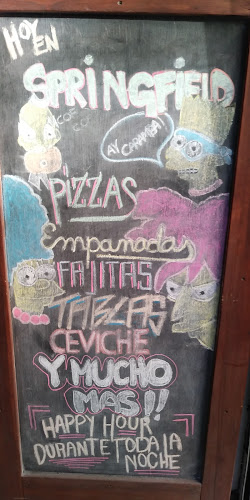 HOY
EN
SPRINGFIELD
AY CARAMBA!
PIZZAS
Empanadas
FAJITAS
TABLAS
CEVICHE
Y MUCHO
MAS!!
HAPPY HOUR
DURANTE TODA LA
NOCHE